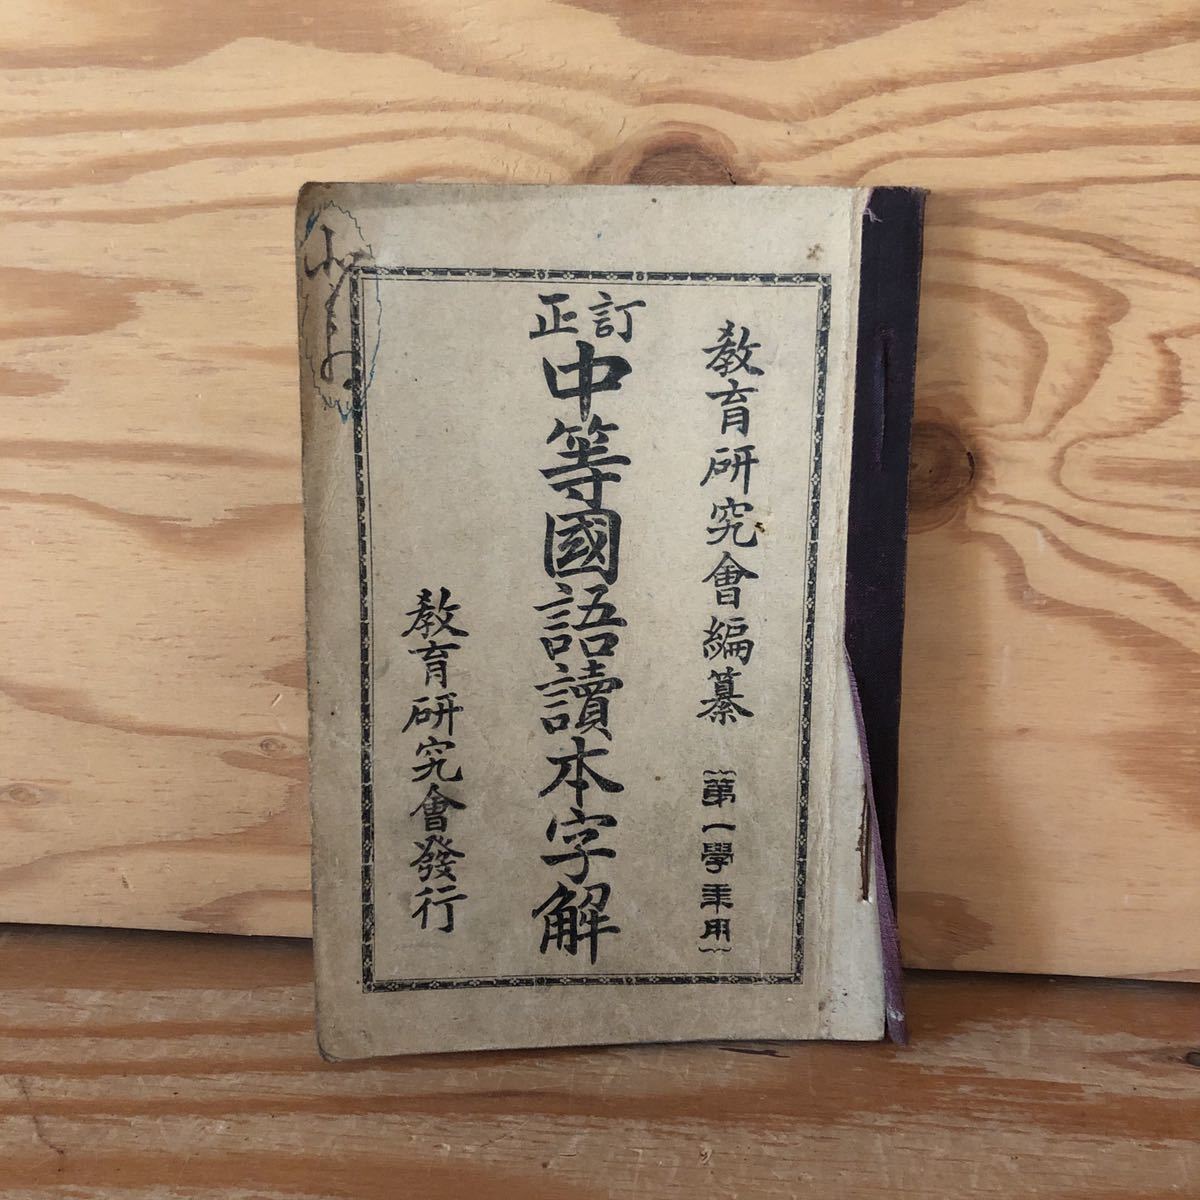 教育研究會編纂
第一學年用
訂正
中等國語讀本字解
教育研究會發行